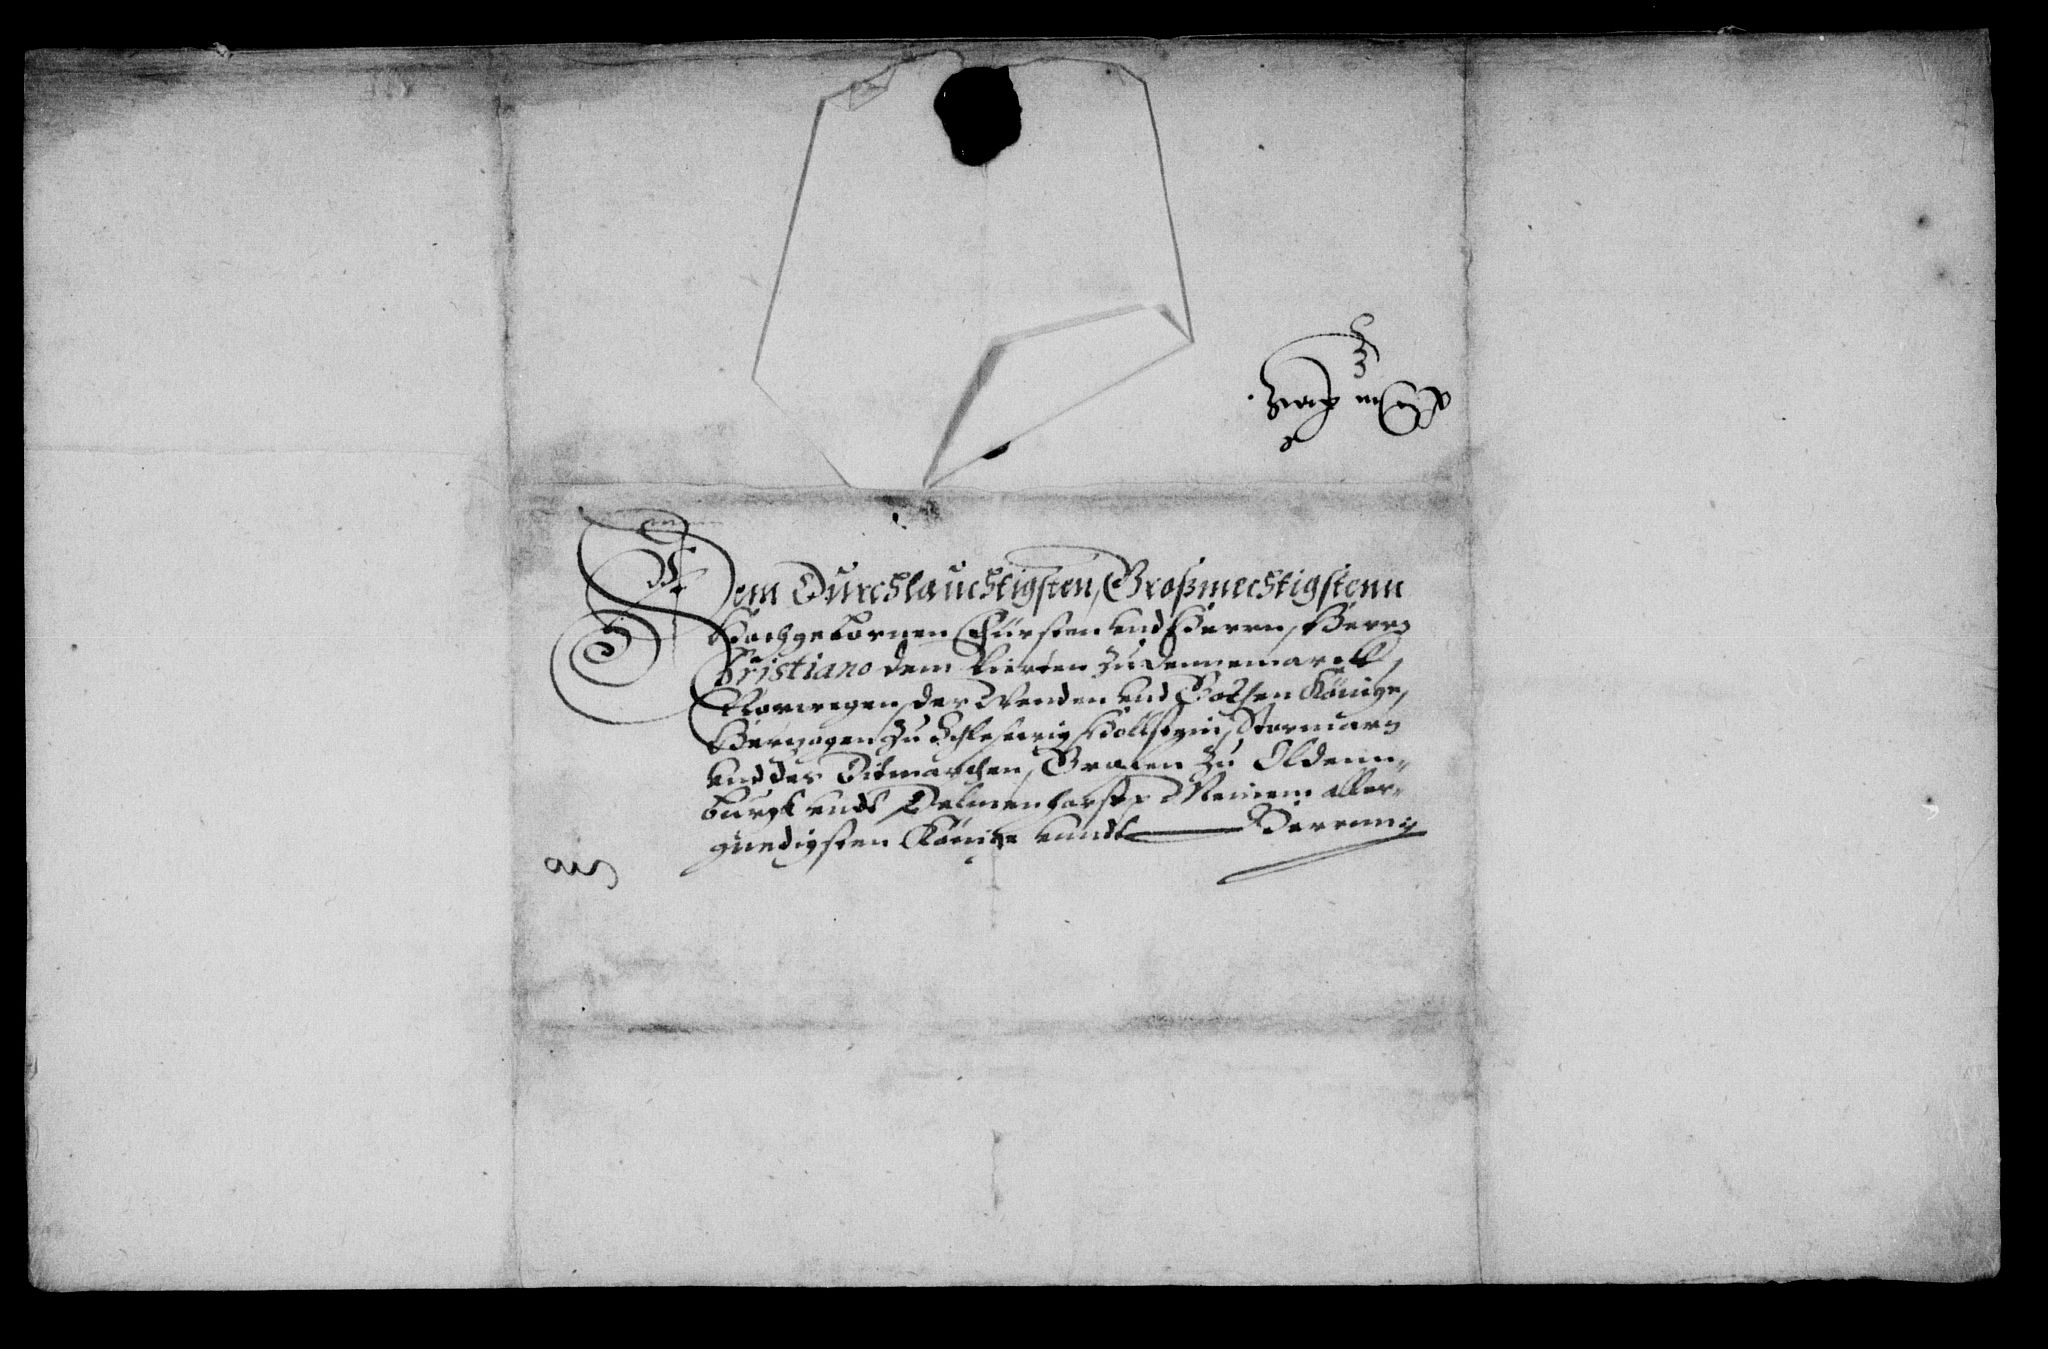 Dem Durchlauchtigsten, Großmechtigstenn
Hochgebornen Fürsten und Herrn, Herrn
Christiano dem Vierten zu Dennemarck,
Norwegen, der Wenden und Gothen Könige,
Hertzogen zu Schleswig, Hollstein, Stormarn
und der Ditmarschen, Graven zu Oldenn-
burgk undt Delmenhorst, Meinem aller-
gnedigsten Könige unndt Herrenn